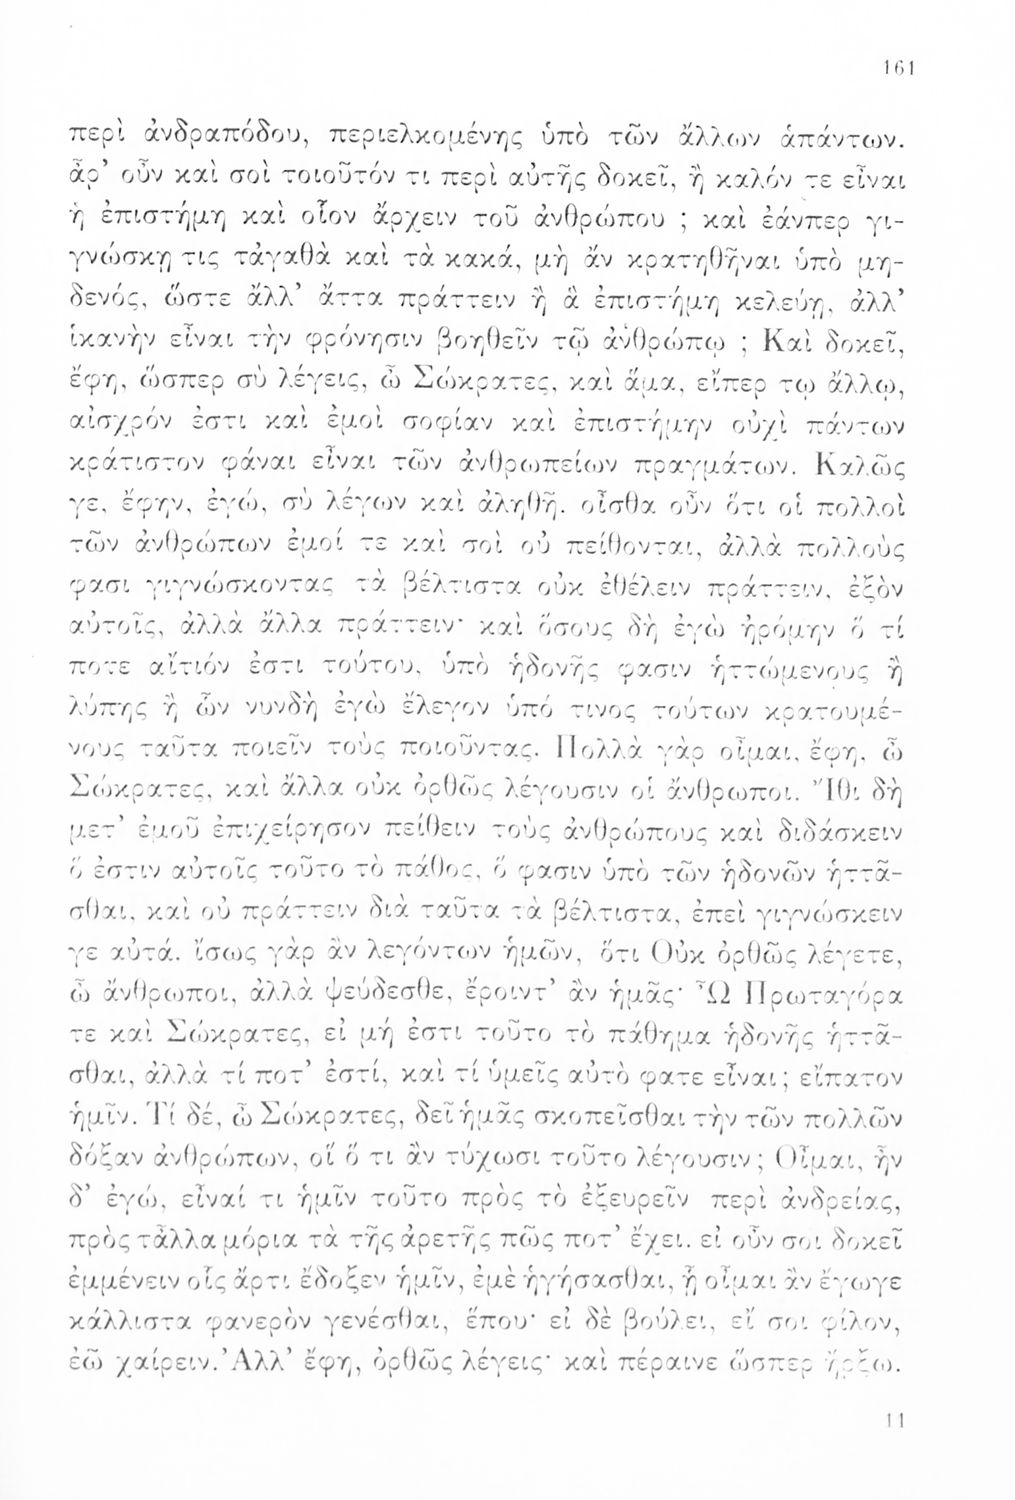 161
περὶ ἀνδραπόδου, περιελκομένης ὑπὸ τῶν ἄλλων ἁπάντων.
ἆρ’ οὖν καὶ σοὶ τοιοῦτόν τι περὶ αὐτῆς δοκεῖ, ἢ καλόν τε εἶναι
ἡ ἐπιστήμη καὶ οἷον ἄρχειν τοῦ ἀνθρώπου ; καὶ ἐάνπερ γι-
γνώσκῃ τις τἀγαθὰ καὶ τὰ κακά, μὴ ἂν κρατηθῆναι ὑπὸ μη-
δενός, ὥστε ἄλλ’ ἄττα πράττειν ἢ ἃ ἐπιστήμη κελεύῃ, ἀλλ’
ἱκανὴν εἶναι τὴν φρόνησιν βοηθεῖν τῷ ἀνθρώπῳ ; Καὶ δοκεῖ,
ἔφη, ὥσπερ σὺ λέγεις, ὦ Σώκρατες, καὶ ἅμα, εἴπερ τῳ ἄλλῳ,
αἰσχρόν ἐστι καὶ ἐμοὶ σοφίαν καὶ ἐπιστήμην οὐχὶ πάντων
κράτιστον φάναι εἶναι τῶν ἀνθρωπείων πραγμάτων. Καλῶς
γε, ἔφην, ἐγώ, σὺ λέγων καὶ ἀληθῆ. οἶσθα οὖν ὅτι οἱ πολλοὶ
τῶν ἀνθρώπων ἐμοί τε καὶ σοὶ οὐ πείθονται, ἀλλὰ πολλούς
φασι γιγνώσκοντας τὰ βέλτιστα οὐκ ἐθέλειν πράττειν, ἐξὸν
αὐτοῖς, ἀλλὰ ἄλλα πράττειν· καὶ ὅσους δὴ ἐγὼ ἠρόμην ὅ τί
ποτε αἴτιόν ἐστι τούτου, ὑπὸ ἡδονῆς φασιν ἡττώμενους ἢ
λύπης ἢ ὧν νυνδὴ ἐγὼ ἔλεγον ὑπό τινος τούτων κρατουμέ-
νους ταῦτα ποιεῖν τοὺς ποιοῦντας. Πολλὰ γὰρ οἶμαι, ἔφη, ὦ
Σώκρατες, καὶ ἄλλα οὐκ ὀρθῶς λέγουσιν οἱ ἄνθρωποι. Ἴθι δὴ
μετ’ ἐμοῦ ἐπιχείρησον πείθειν τοὺς ἀνθρώπους καὶ διδάσκειν
ὅ ἐστιν αὐτοῖς τοῦτο τὸ πάθος, ὅ φασιν ὑπὸ τῶν ἡδονῶν ἡττᾶ-
σθαι, καὶ οὐ πράττειν διὰ ταῦτα τὰ βέλτιστα, ἐπεὶ γιγνώσκειν
γε αὐτά. ἴσως γὰρ ἂν λεγόντων ἡμῶν, ὅτι Οὐκ ὀρθῶς λέγετε,
ὦ ἄνθρωποι, ἀλλὰ ψεύδεσθε, ἔροιντ’ ἂν ἡμᾶς· Ὦ Πρωταγόρα
τε καὶ Σώκρατες, εἰ μή ἐστι τοῦτο τὸ πάθημα ἡδονῆς ἡττᾶ-
σθαι, ἀλλὰ τί ποτ’ ἐστί, καὶ τί ὑμεῖς αὐτὸ φατε εἶναι ; εἴπατον
ἡμῖν. Τί δέ, ὦ Σώκρατες, δεῖ ἡμᾶς σκοπεῖσθαι τὴν τῶν πολλῶν
δόξαν ἀνθρώπων, οἳ ὅ τι ἂν τύχωσι τοῦτο λέγουσιν ; Οἶμαι, ἦν
δ’ ἐγώ, εἶναί τι ἡμῖν τοῦτο πρὸς τὸ ἐξευρεῖν περὶ ἀνδρείας,
πρὸς τἆλλα μόρια τὰ τῆς ἀρετῆς πῶς ποτ’ ἔχει. εἰ οὖν σοι δοκεῖ
ἐμμένειν οἷς ἄρτι ἔδοξεν ἡμῖν, ἐμὲ ἡγήσασθαι, ᾗ οἶμαι ἂν ἔγωγε
κάλλιστα φανερὸν γενέσθαι, ἕπου· εἰ δὲ βούλει, εἴ σοι φίλον,
ἐῶ χαίρειν. Ἀλλ’ ἔφη, ὀρθῶς λέγεις· καὶ πέραινε ὥσπερ ἤρξω.
11